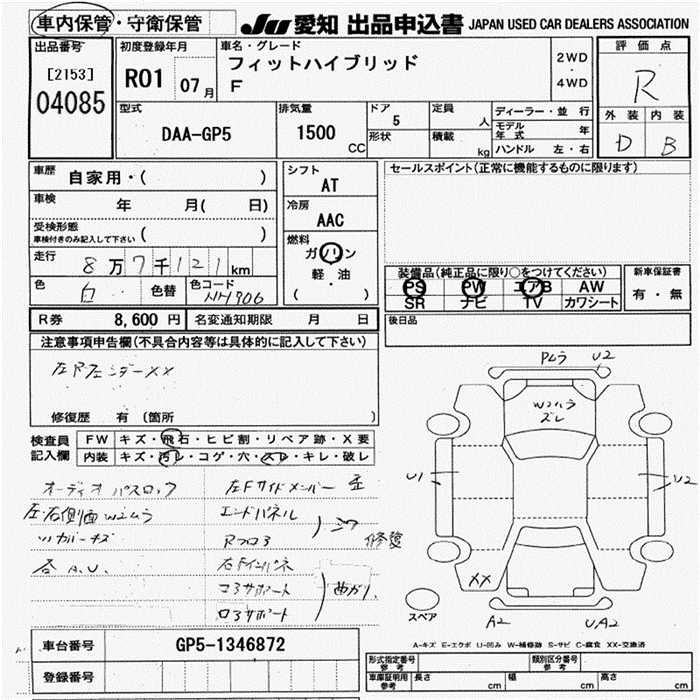 車内保管・守衛保管
JU 愛知 出品申込書 JAPAN USED CAR DEALERS ASSOCIATION
出品番号
[2153]
04085
初度登録年月
R01 07月
車名・グレード
フィットハイブリッド
F
2WD
・
4WD
評価点
R
外装 内装
D B
型式
DAA-GP5
排気量
1500
CC
ドア
5
形状
定員
人
積載
kg
ディーラー・並行
モデル年式 年
ハンドル 左・右
車歴 自家用・( )
車検 年 月( 日)
受検形態
車検付きのみ記入して下さい ( )
走行 8万7千121km
色 白 色替 色コード NH706
シフト
AT
冷房
AAC
燃料
ガソリン
軽・油
( )
セールスポイント(正常に機能するものに限ります)
装備品(純正品に限り○をつけてください)
PS PW エアB AW
SR ナビ TV カワシート
新車保証書
有・無
R券 8,600円 名変通知期限 月 日
後日品
注意事項申告欄(不具合内容等は具体的に記入して下さい)
修復歴 有 (箇所 )
検査員
記入欄
FW キズ・飛石・ヒビ割・リペア跡・X要
内装 キズ・汚レ・コゲ・穴・スレ・キレ・破レ
オーディオパスロック
左右側面W2ムラ
各A.U.
左Fサイドメンバー 歪
エンドパネル
修復
コアサポート
曲がり
ロアサポート
U2
W2ムラ
ズレ
U1
U2
XX
スペア
A2
UA2
A-キズ E-エクボ U-凹み W-補修跡 S-サビ C-腐食 XX-交換済
車台番号 GP5-1346872
登録番号
形式指定番号
参考
類別区分番号
参考
車庫証明用
参考
長さ cm 幅 cm 高さ cm